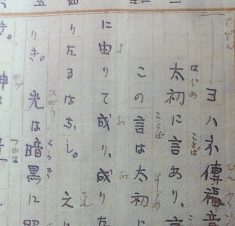 ヨハネ傳福音
太初に言あり、言
この言は太初に
に由りて成り、成りた
りたるはなし。之に
りき。光は暗黒に照
き。神